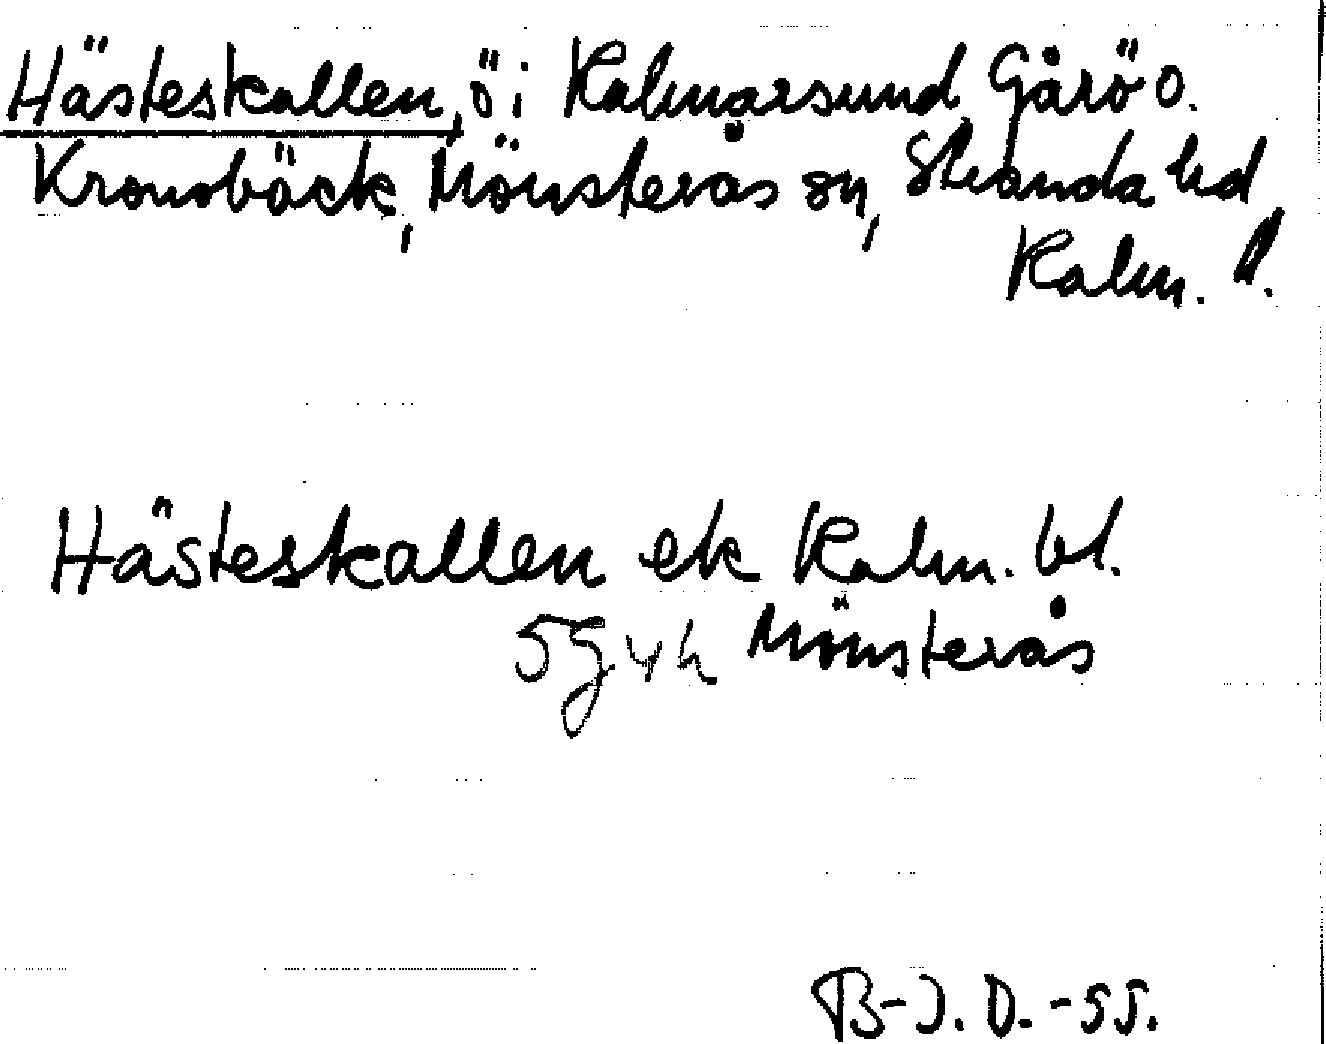 Hästeskallen, ö i Kalmarsund Gårö o.
Kronobäck, Mönsterås sn, Stranda hd
Kalm. l.
Hästeskallen ek Kalm. bl.
5g vh Mönsterås
B-J. D. -55.